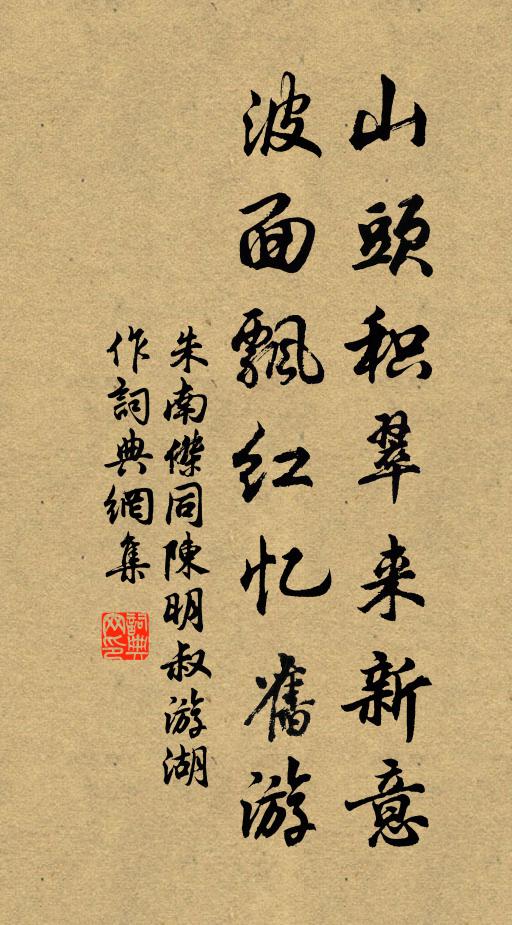 山頭积翠来新意
波面飄红忆舊游
朱南傑同陳明叔游湖
作詞典網集
詞典网印